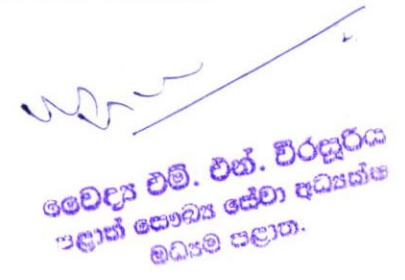 වෛද්‍ය එම්. එන්. වීරසූරිය
පළාත් සෞඛ්‍ය සේවා අධ්‍යක්ෂ
මධ්‍යම පළාත.